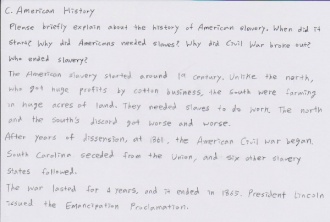 C. American History
Please briefly explain about the history of American slavery. When did it
start? Why did Americans needed slaves? Why did Civil War broke out?
Who ended slavery?
The American slavery started around 19 century. Unlike the north,
who got huge profits by cotton business, the South were farming
in huge acres of land. They needed slaves to do work. The north
and the south's discord got worse and worse.
After years of dissension, at 1861, the American Civil war began.
South Carolina seceded from the Union, and six other slavery
states followed.
The war lasted for 4 years, and it ended in 1865. President Lincoln
issued the Emancipation Proclamation.